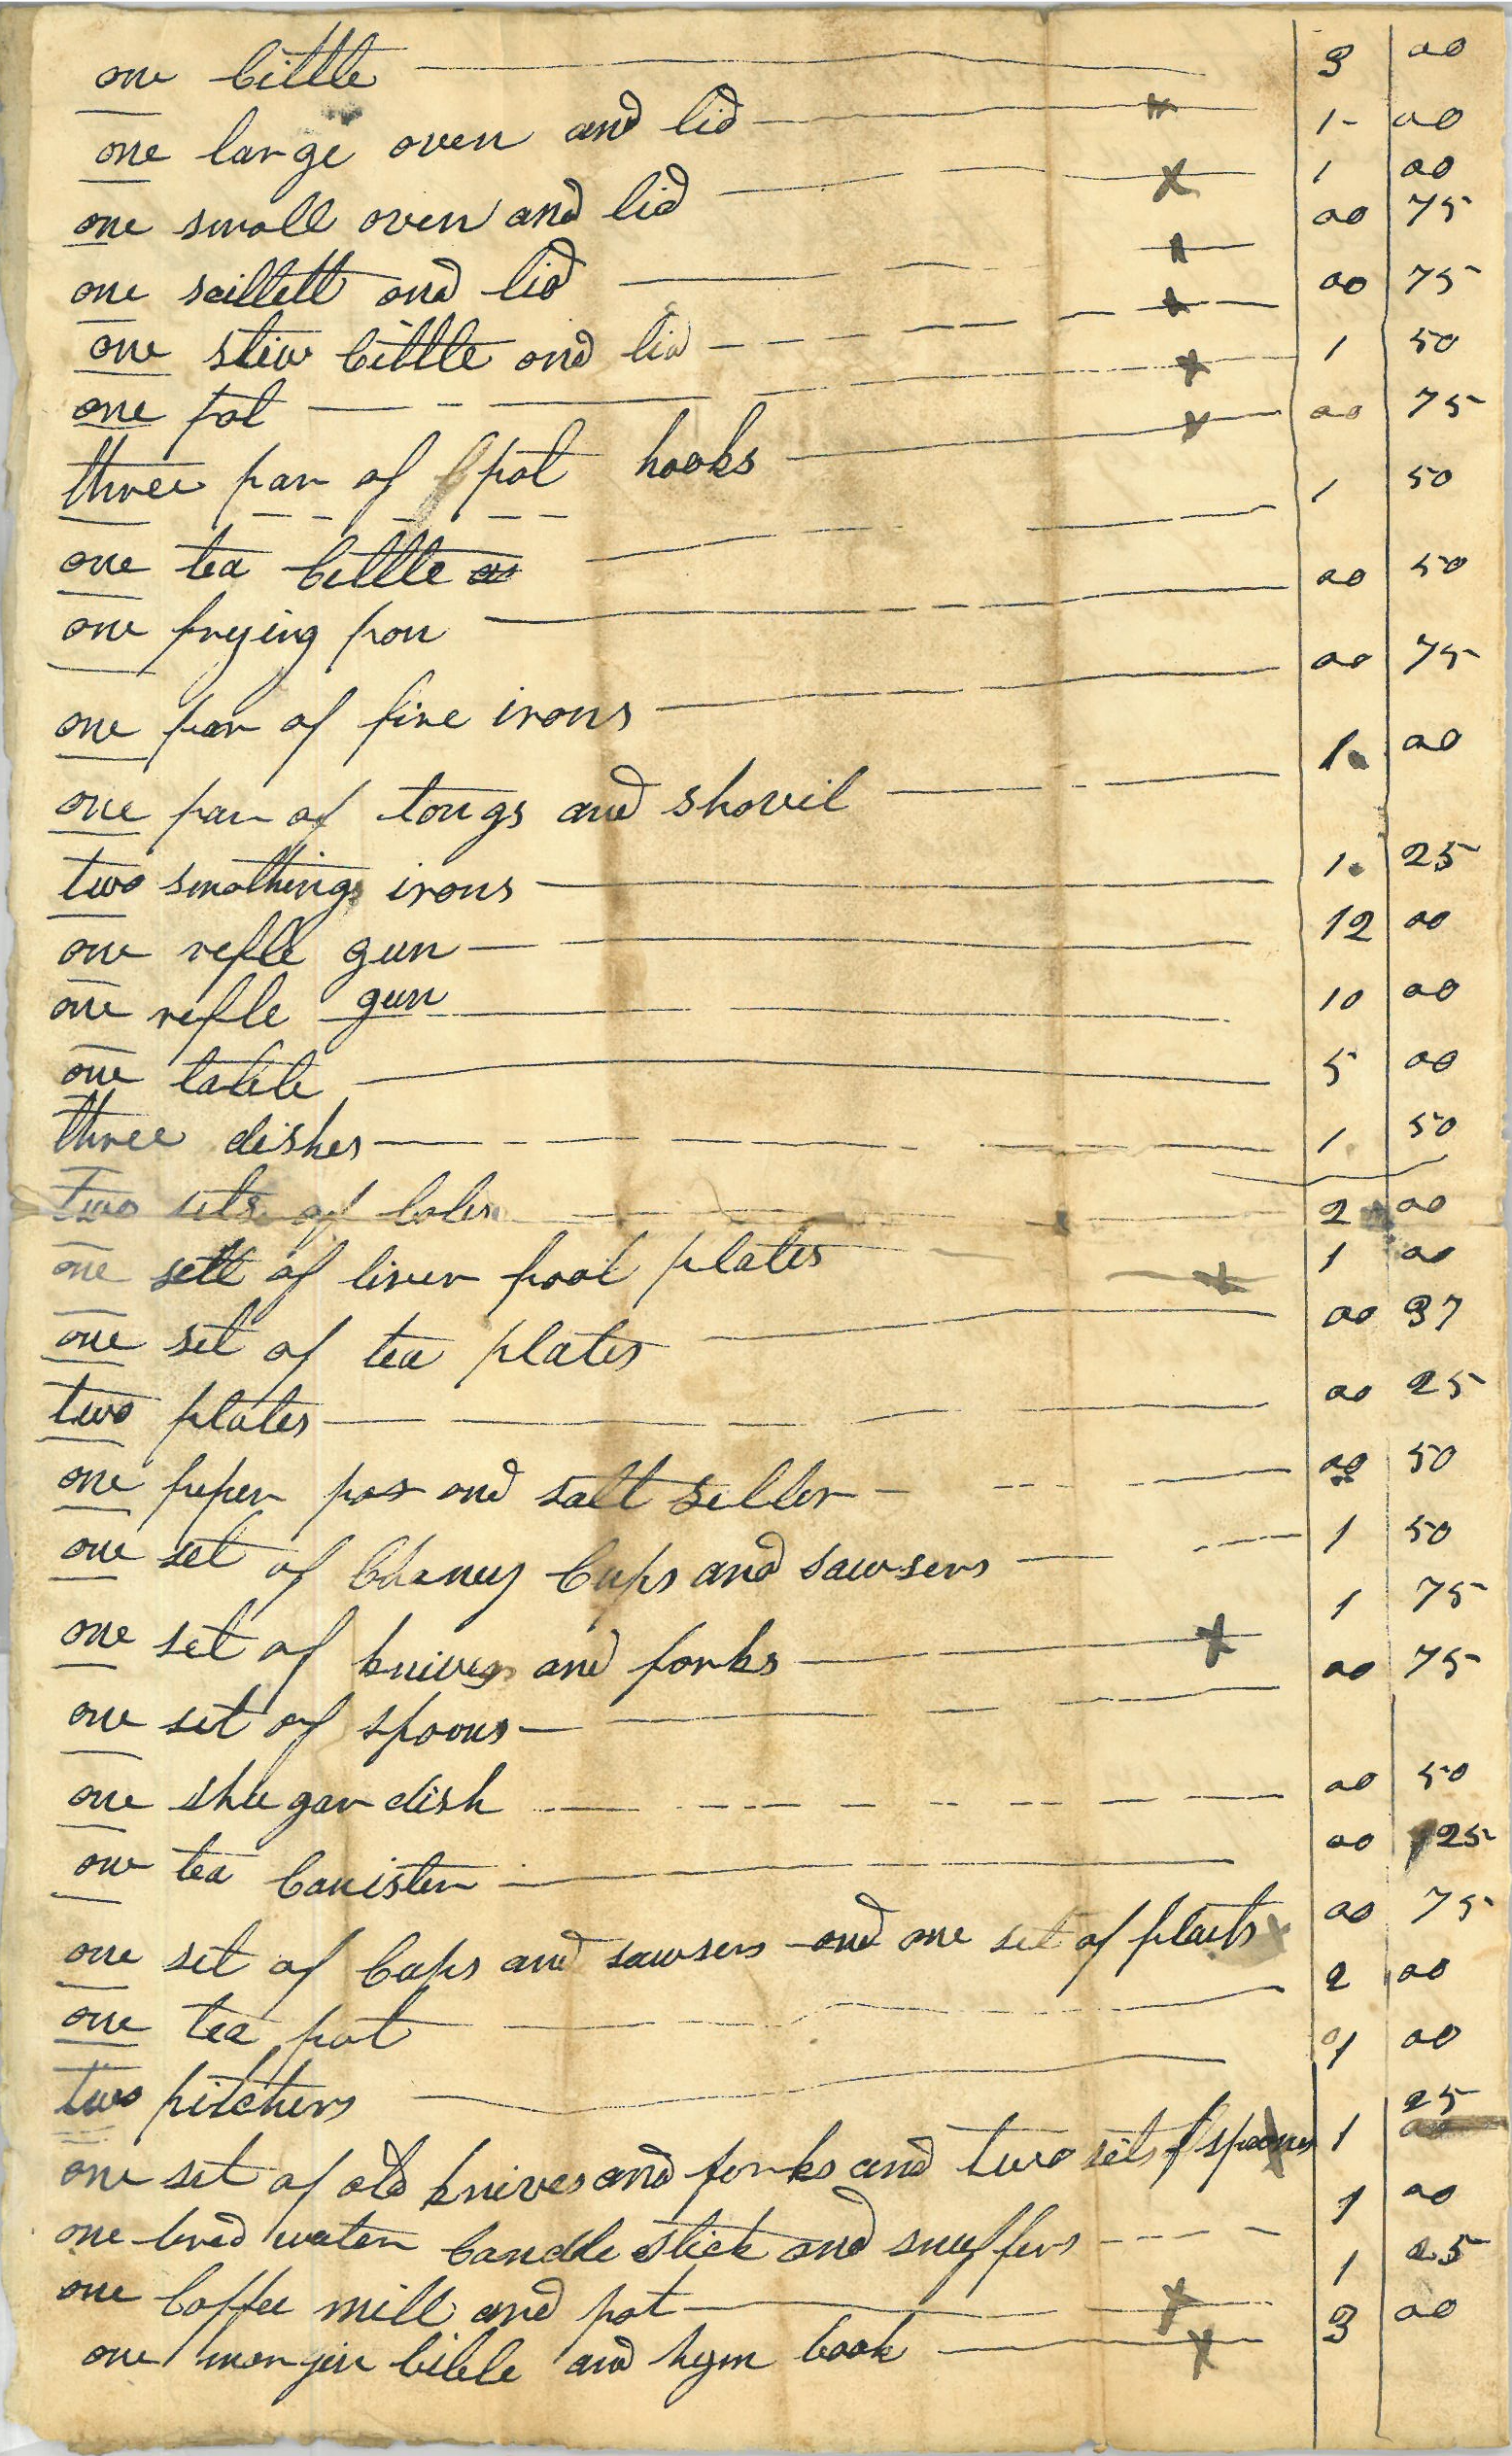 one cittle 3 00
one large oven and lid x 1 00
one small oven and lid x 1 00
one scillett and lid x 00 75
one stew cittle and lid x 00 75
one pot x 1 50
three par of pot hooks x 00 75
one tea cittle 1 50
one frying pan 00 50
one par of fire irons 00 75
one par of tongs and shovil 1 00
two smothing irons 1 25
one refle gun 12 00
one refle gun 10 00
one table 5 00
three dishes 1 50
Two sets of boles 2 00
one sett of liver pool plates x 1 00
one set of tea plates 00 37
two plates 00 25
one peper pot and salt seller 00 50
one set of Chaney Cups and sawsers 1 50
one set of knives and forks x 1 75
one set of spoons 00 75
one shugar dish 00 50
one tea Canister 00 25
one set of Cups and sawsers and one set of plaits 00 75
one tea pot 2 00
two pitchers 1 00
one set of old knives and forks and two sets of spoones 1 25
one bred waiter Candle stick and snuffers 1 00
one Coffee mill and pot x 1 25
one morjin bible and hym book x 3 00